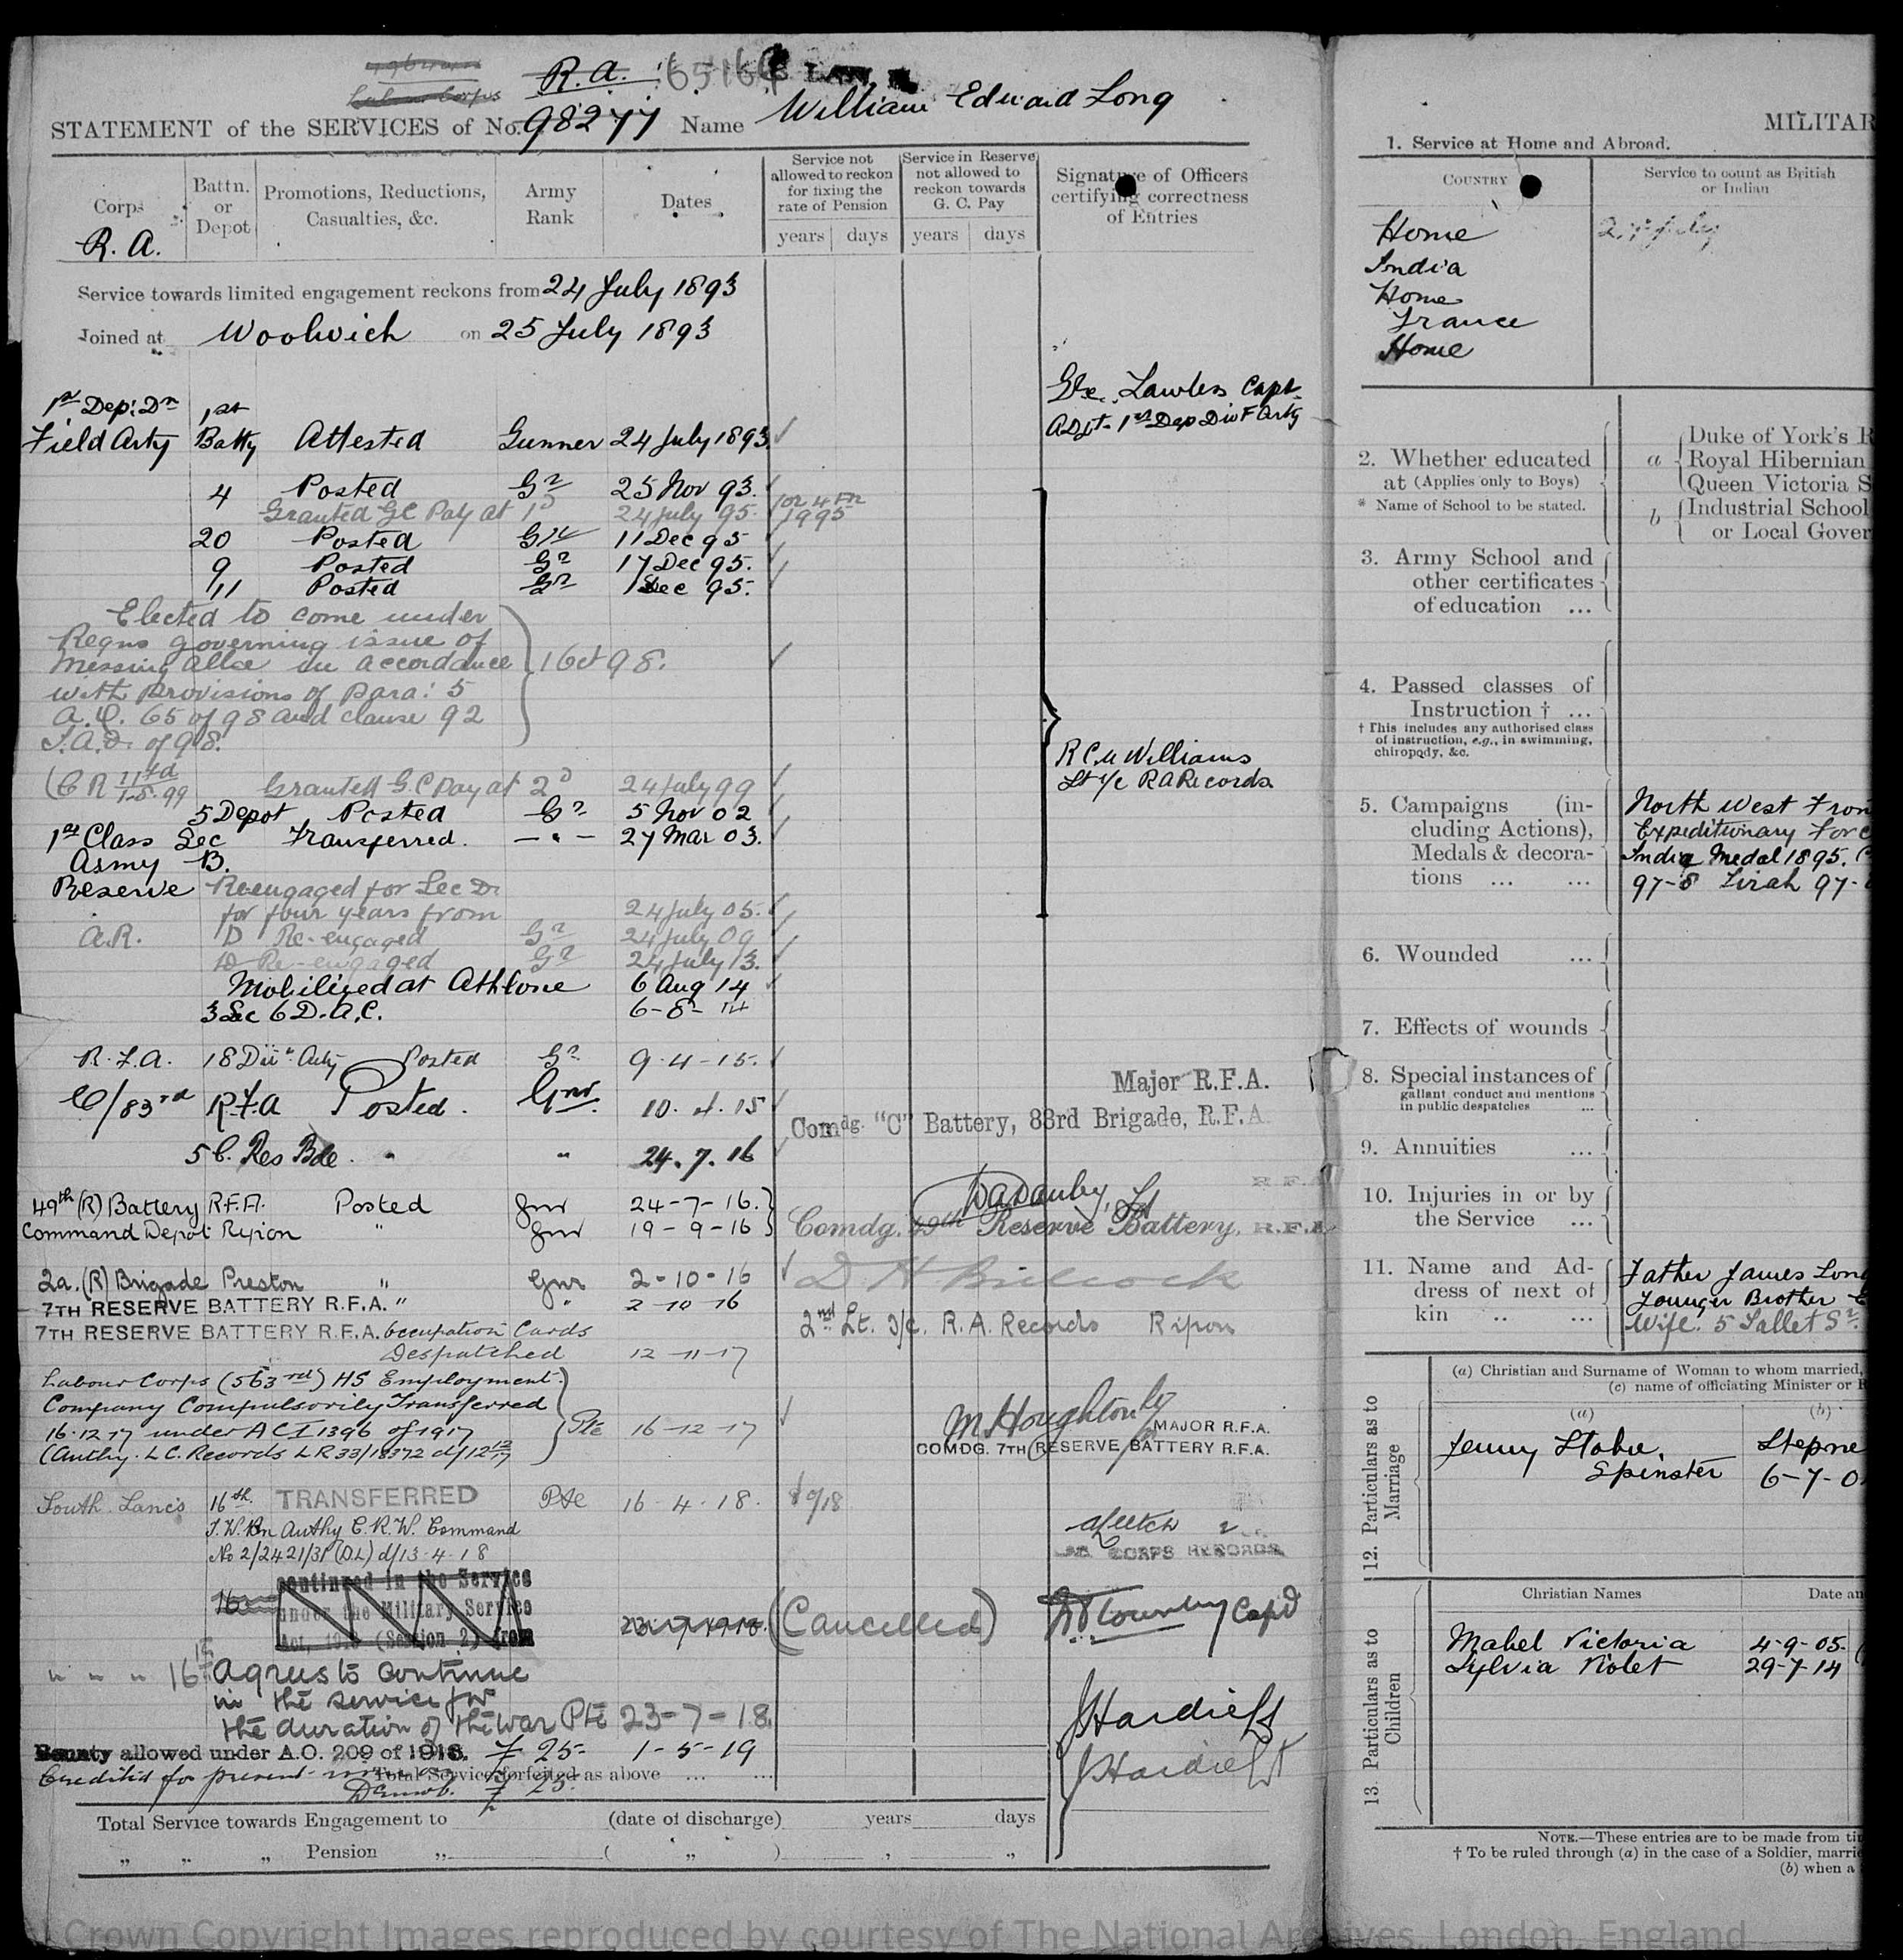 Labour Corps
R.A. 65166
STATEMENT of the SERVICES of No. 98277 Name William Edward Long
Corps
R.A.
Battn. or Depot
Promotions, Reductions, Casualties, &c.
Army Rank
Dates
Service not allowed to reckon for fixing the rate of Pension
years days
Service in Reserve not allowed to reckon towards G. C. Pay
years days
Signature of Officers certifying correctness of Entries
Service towards limited engagement reckons from 24 July 1893
Joined at Woolwich on 25 July 1893
1st Dep: Dn 1st
Field Arty Batty Attested Gunner 24 July 1893
Lawless Capt
Adjt. 1st Dep Div F Arty
4 Posted Gr 25 Nov 93.
Granted GC Pay at 1D 24 July 95.
20 Posted Gr 11 Dec 95
9 Posted Gr 17 Dec 95.
11 Posted Gr Dec 95.
Elected to come under
Regns governing issue of
Messing Allce in accordance 1 Oct 98.
with provisions of Para: 5
A.O. 65 of 98 and clause 92
of 98.
Granted G.C Pay at 2D 24 July 99
R C Williams
Lt i/c R A Records
5 Depot Posted Gr 5 Nov 02
1st Class Sec Transferred. — " — 27 Mar 03.
Army B.
Reserve Reengaged for Sec D.
for four years from 24 July 05.
A.R. D Re-engaged Gr 24 July 09
D Re-engaged Gr 24 July 13.
Mobilized at Athlone 6 Aug 14
3 Sec 6 D.A.C. 6-8-14
R.F.A. 18 Divn Arty Posted Gr 9.4-15.
C/83rd R.F.A Posted. Gnr. 10.4.15
Major R.F.A.
Comdg. "C" Battery, 83rd Brigade, R.F.A
5 C. Res Bde. " " 24.7.16
49th (R) Battery R.F.A. Posted Gnr 24-7-16.
Command Depot Ripon " Gnr 19-9-16
Danby, Lt
Comdg. 49th Reserve Battery, R.F.A
2a. (R) Brigade Preston " Gnr 2-10-16
7TH RESERVE BATTERY R.F.A. " " 2-10-16
7TH RESERVE BATTERY R.F.A. Occupation Cards
Despatched 12-11-17
2nd Lt. I/C. R.A. Records Ripon
Labour Corps (563rd) HS Employment
Company Compulsorily Transferred
16.12.17 under A C I 1396 of 1917 Pte 16-12-17
(Authy. L C. Records LR 33/18372
M Houghton
MAJOR R.F.A.
COMDG. 7TH RESERVE BATTERY R.F.A.
South Lancs 16th. TRANSFERRED Pte 16-4-18.
Authy C.R.W. Command
No 2/2421/31 (D.L) d/13-4-18
CORPS RECORDS
16
continued in the Service
under the Military Service
Act, (Section 2) from
23.7.1918. (Cancelled) Capt
" " " 16th Agrees to continue
in the service for
the duration of the war Pte 23-7-18.
J Hardie Lt
Bounty allowed under A.O. 209 of 1918. £ 25- 1-5-19
J Hardie Lt
Credited for present
Total Service forfeited as above ... ...
Demob. £ 25-
Total Service towards Engagement to (date of discharge) years days
" " " Pension " ( " ) " "
MILITAR
1. Service at Home and Abroad.
COUNTRY
Service to count as British or Indian
Home
India
Home
France
Home
2. Whether educated at (Applies only to Boys)
* Name of School to be stated.
a Duke of York's R
Royal Hibernian
Queen Victoria S
b Industrial School
or Local Gover
3. Army School and other certificates of education ...
4. Passed classes of Instruction † ...
† This includes any authorised class of instruction, e.g., in swimming, chiropody, &c.
5. Campaigns (including Actions), Medals & decorations ... ...
North West Fron
Expeditionary Forc
India Medal 1895.
97-8 Tirah 97-
6. Wounded ...
7. Effects of wounds
8. Special instances of gallant conduct and mentions in public despatches ...
9. Annuities ...
10. Injuries in or by the Service ...
11. Name and Address of next of kin .. ...
Father James Long
Younger Brother
Wife. 5 Sallet St.
12. Particulars as to Marriage
(a) Christian and Surname of Woman to whom married,
(c) name of officiating Minister or R
(a) (b)
Jenny
Spinster
Stepne
6-7-0
13. Particulars as to Children
Christian Names Date an
Mabel Victoria 4-9-05.
Sylvia Violet 29-7-14
NOTE.—These entries are to be made from ti
† To be ruled through (a) in the case of a Soldier, marri
(b) when a
Crown Copyright Images reproduced by courtesy of The National Archives, London, England